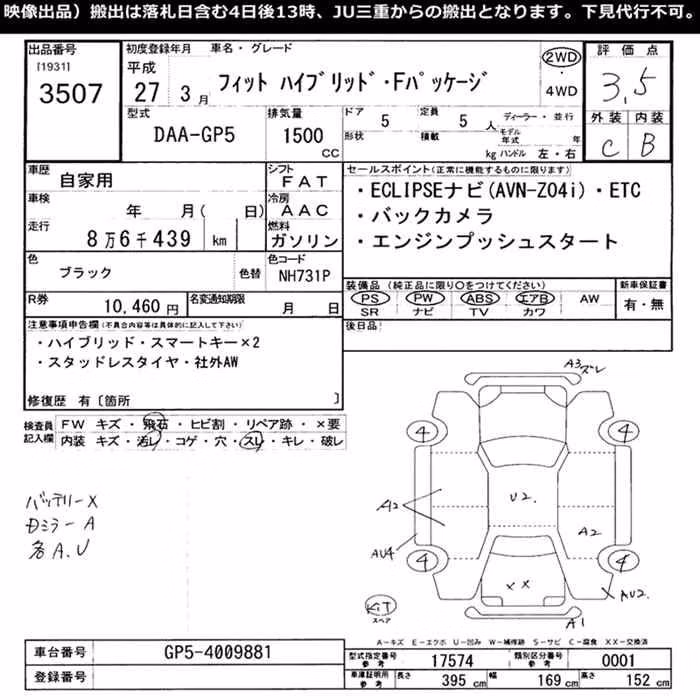 映像出品）搬出は落札日含む4日後13時、JU三重からの搬出となります。下見代行不可。
出品番号 [1931] 3507
初度登録年月 平成 27 3月
車名・グレード フィット ハイブリッド・Fパッケージ
2WD・4WD
評価点 3.5
型式 DAA-GP5
排気量 1500 CC
ドア 5
定員 5 人
形状
積載 kg
ディーラー・並行
モデル年式 年
ハンドル 左・右
外装 C 内装 B
車歴 自家用
シフト FAT
車検 年 月( 日)
冷房 AAC
走行 8万6千439 km
燃料 ガソリン
色 ブラック 色替
色コード NH731P
R券 10,460円
名変通知期限 月 日
セールスポイント(正常に機能するものに限ります)
・ECLIPSEナビ(AVN-Z04i)・ETC
・バックカメラ
・エンジンプッシュスタート
装備品 (純正品に限り○をつけてください)
PS PW ABS エアB AW
SR ナビ TV カワ
新車保証書 有・無
後日品
注意事項申告欄(不具合内容等は具体的に記入して下さい)
・ハイブリッド・スマートキー×2
・スタッドレスタイヤ・社外AW
修復歴 有〔箇所 〕
検査員記入欄
FW キズ・飛石・ヒビ割・リペア跡・×要
内装 キズ・汚レ・コゲ・穴・スレ・キレ・破レ
バッテリーX
Dミラー A
各A.U
A3ズレ
4 4
U2.
A2
A2
AU4
4 4
××
×AU2.
KIT
スペア
A1
A－キズ E－エクボ U－凹み W－補修跡 S－サビ C－腐食 XX－交換済
車台番号 GP5-4009881
登録番号
型式指定番号 参考 17574
類別区分番号 参考 0001
車庫証明用 参考 長さ 395 cm 幅 169 cm 高さ 152 cm